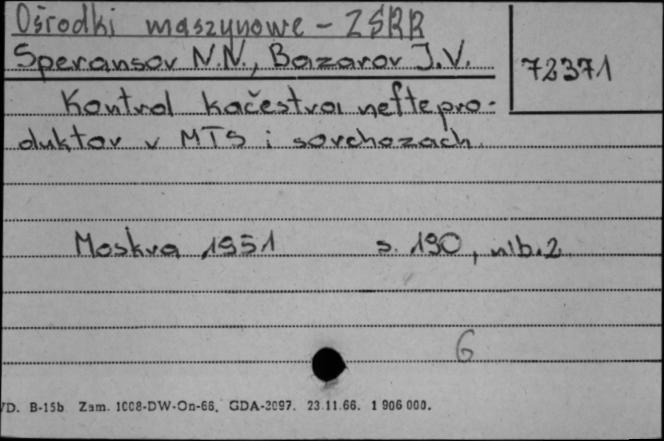 Ośrodki maszynowe - ZSRR
Speransov N.N., Bazarov J.V.
72371
Kontrol kačestva neftepro-
duktov v MTS i sovchozach.
Moskva 1951 s. 190, nlb. 2
6
VD. B-15b Zam. 1008-DW-On-66. GDA-2097. 23.11.66. 1 906 000.